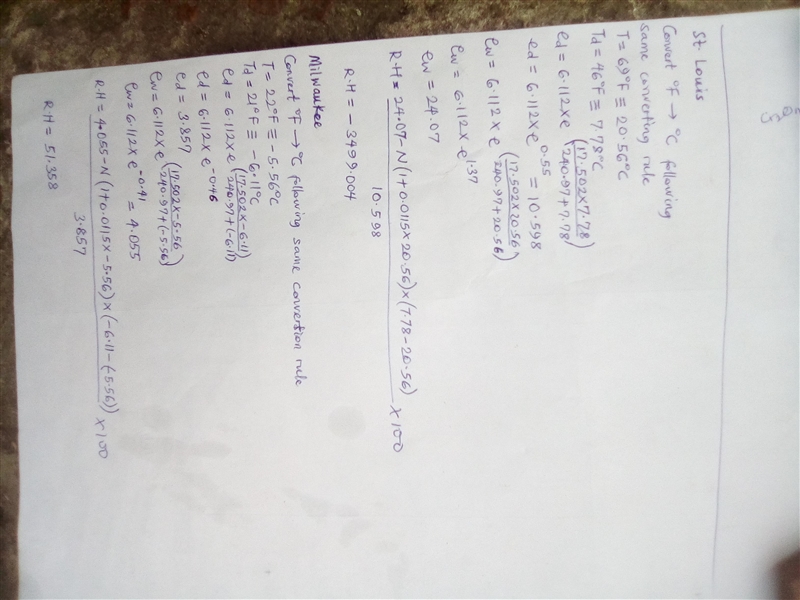 St. Louis
Convert °F → °C following
same converting rule
T = 69°F ≡ 20.56°C
Td = 46°F ≡ 7.78°C
ed = 6.112 x e (17.502x7.78 / 240.97+7.78)
ed = 6.112 x e 0.55 = 10.598
ew = 6.112 x e (17.502x20.56 / 240.97+20.56)
ew = 6.112 x e 1.37
ew = 24.07
R.H = 24.07 - N(1+0.0115x20.56) x (7.78-20.56) / 10.598 x 100
R.H = - 3499.004
Milwaukee
Convert °F → °C following same convertion rule
T = 22°F ≡ -5.56°C
Td = 21°F ≡ -6.11°C
ed = 6.112 x e (17.502x-6.11 / 240.97+(-6.11))
ed = 6.112 x e -0.46
ed = 3.857
ew = 6.112 x e (17.502x-5.56 / 240.97+(-5.56))
ew = 6.112 x e -0.41 = 4.055
R.H = 4.055-N(1+0.0115x-5.56) x (-6.11-(-5.56)) / 3.857 x 100
R.H = 51.358